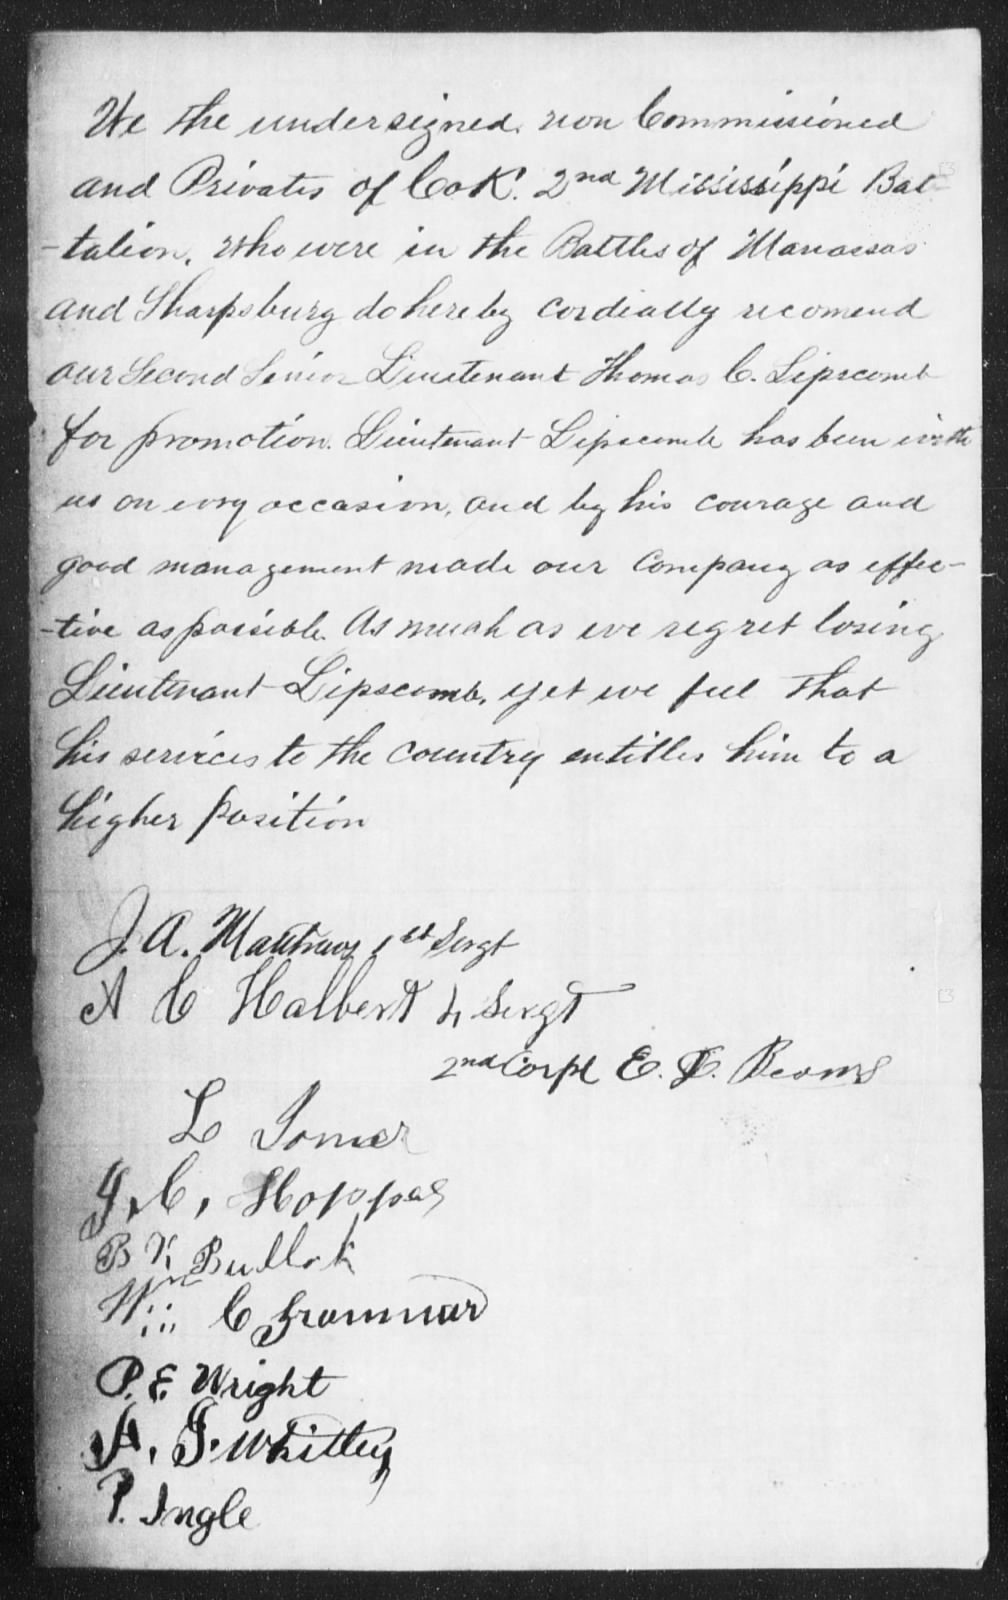 We the undersigned, non Commissioned
and Privates of Co K. 2nd Mississippi Bat-
-talion, who were in the Battles of Manassas
and Sharpsburg do hereby cordially recomend
our Second Senior Lieutenant Thomas C. Lipscomb
for promotion. Lieutenant Lipscomb has been with
us on evry occasion, and by his courage and
good management made our Company as effec-
-tive as possible. As much as we regret losing
Lieutenant Lipscomb, yet we feel that
his services to the country entitles him to a
higher position
J. A. Matthews 1st Sergt
A C Halbert 4 Sergt
2nd Corpl E. Beams
L
J. C. Hoppas
B K Bullok
Wm C
P. E. Wright
A. J. Whitley
P. Ingle